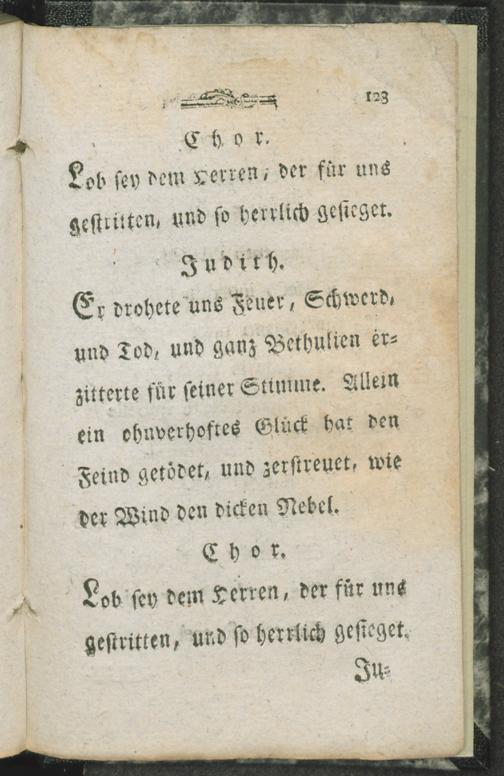 123
Chor.
Lob sey dem Herren, der für uns
gestritten, und so herrlich gesieget.
Judith.
Er drohete uns Feuer, Schwerd,
und Tod, und ganz Bethulien er-
zitterte für seiner Stimme. Allein
ein ohnverhoftes Glück hat den
Feind getödet, und zerstreuet, wie
der Wind den dicken Nebel.
Chor.
Lob sey dem Herren, der für uns
gestritten, und so herrlich gesieget.
Ju-